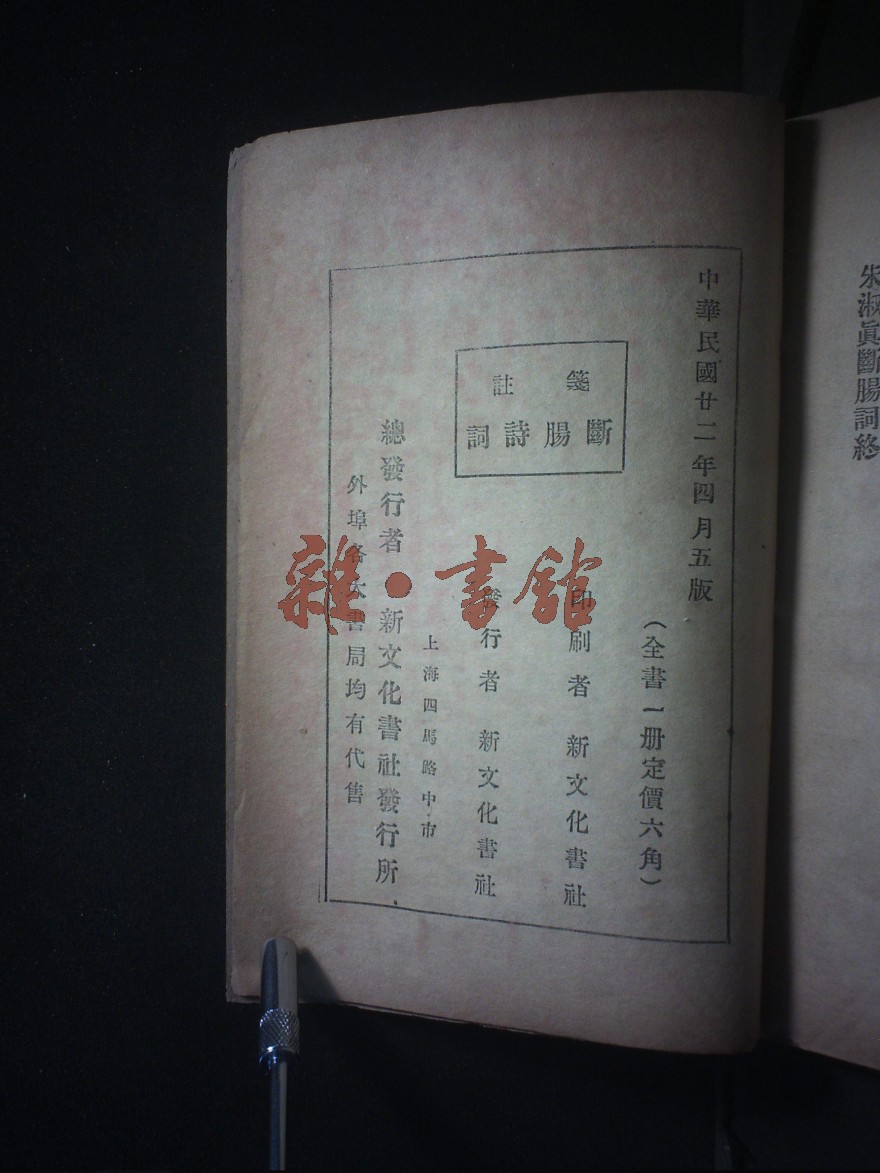 朱淑眞斷腸詞終
中華民國廿二年四月五版
（全書一册定價六角）
箋註
斷腸詩詞
印刷者 新文化書社
發行者 新文化書社
上海四馬路中市
總發行者 新文化書社發行所
外埠各大書局均有代售
雜•書館